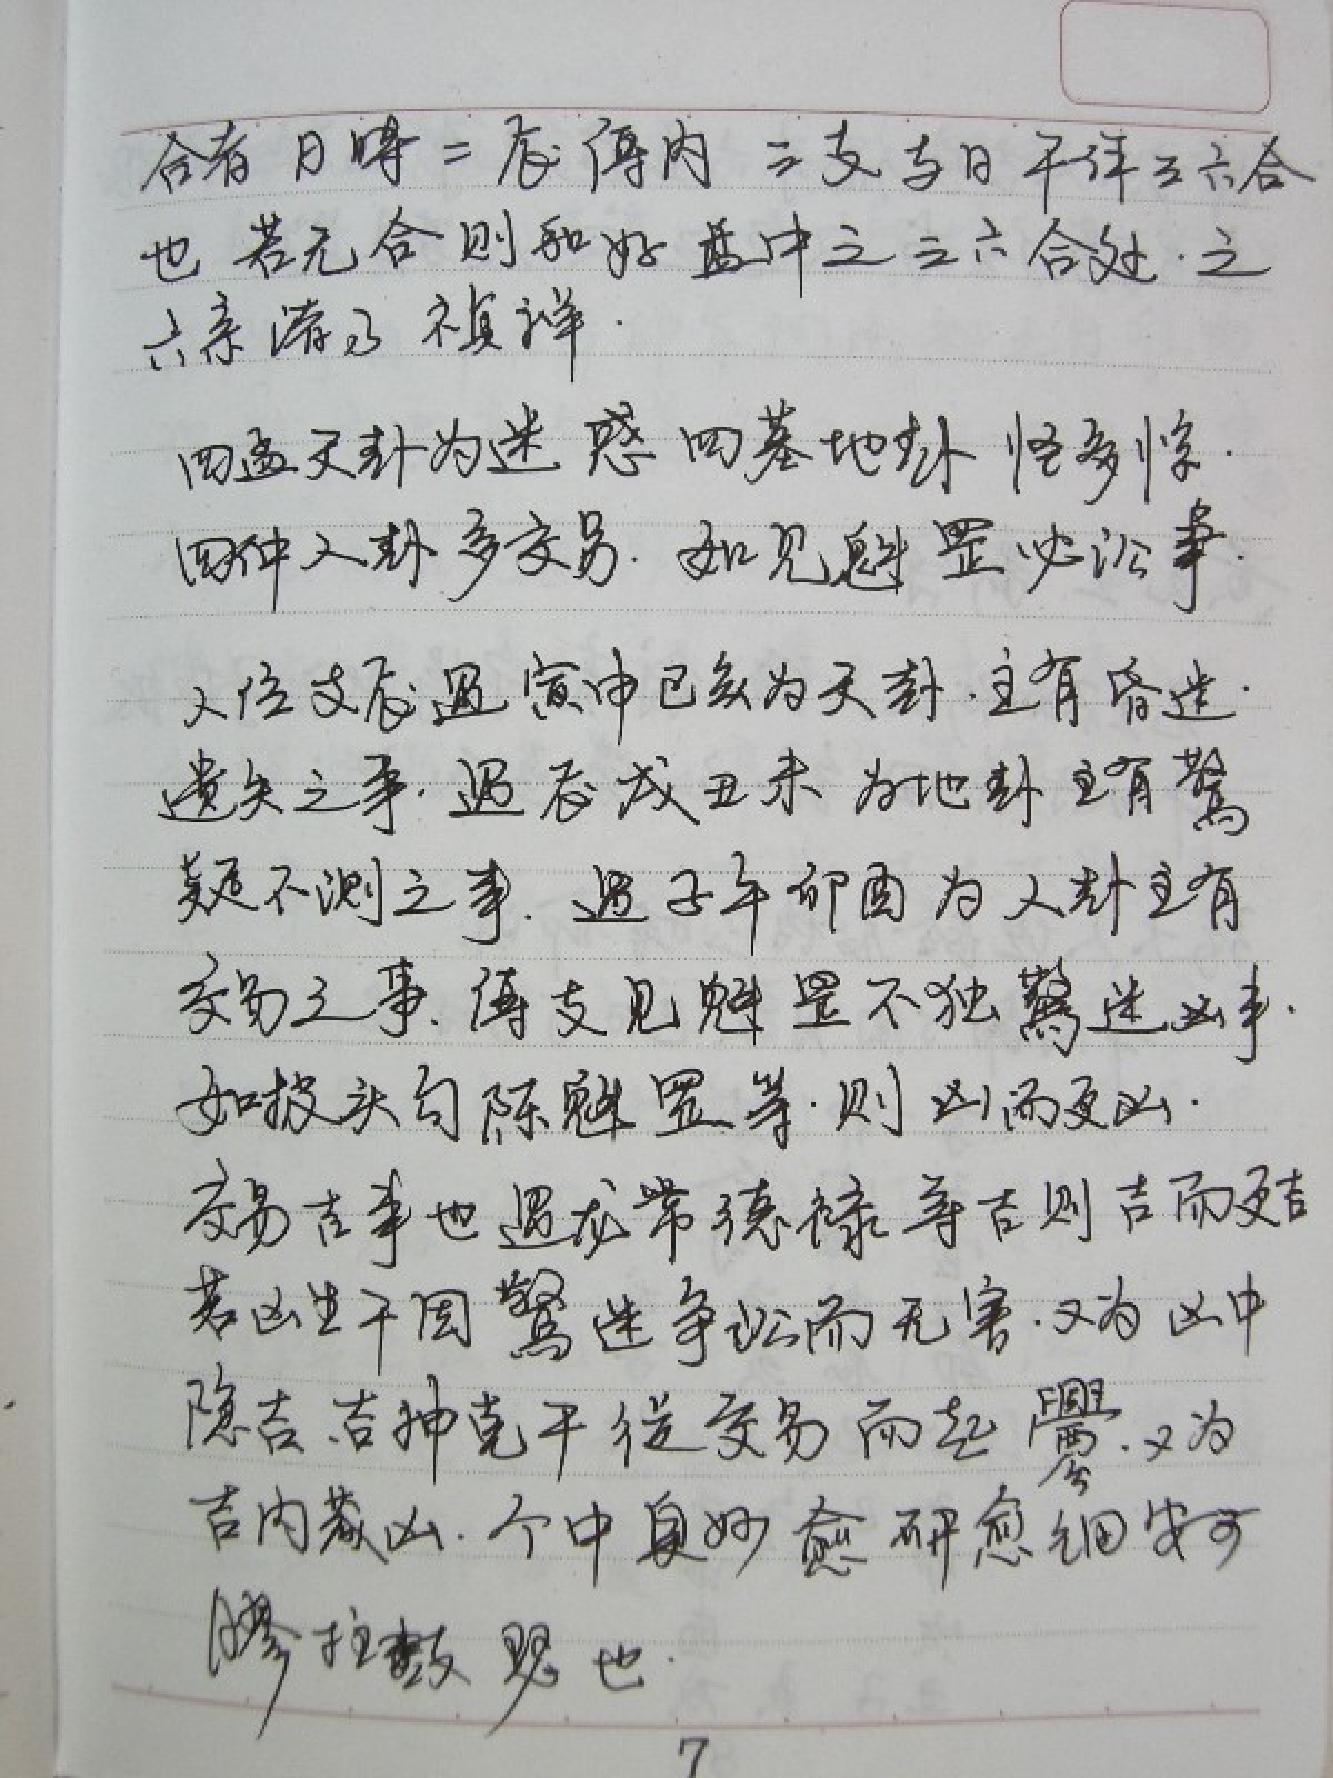 合者日時二辰傳内三支与日干年三六合
也若无合则和好盘中之三六合处.之
六亲消了禎祥.
四孟天卦为迷惑四墓地卦怪多惊.
四仲人卦多交易.如见魁罡必讼事.
人位支辰遇寅申巳亥为天卦.主有昏迷.
遗失之事.遇辰戌丑未为地卦主有驚
疑不测之事.遇子午卯酉为人卦主有
交易之事.傳支见魁罡不独驚迷凶事.
如披头勾陈魁罡等.则凶而更凶.
交易吉事也遇龙常德禄等吉则吉而更吉
若凶生干因驚迷争讼而无害.又为凶中
隐吉.吉神克干従交易而起釁.又为
吉内藏凶.个中良妙愈研愈细安可
膠柱鼓瑟也.
7